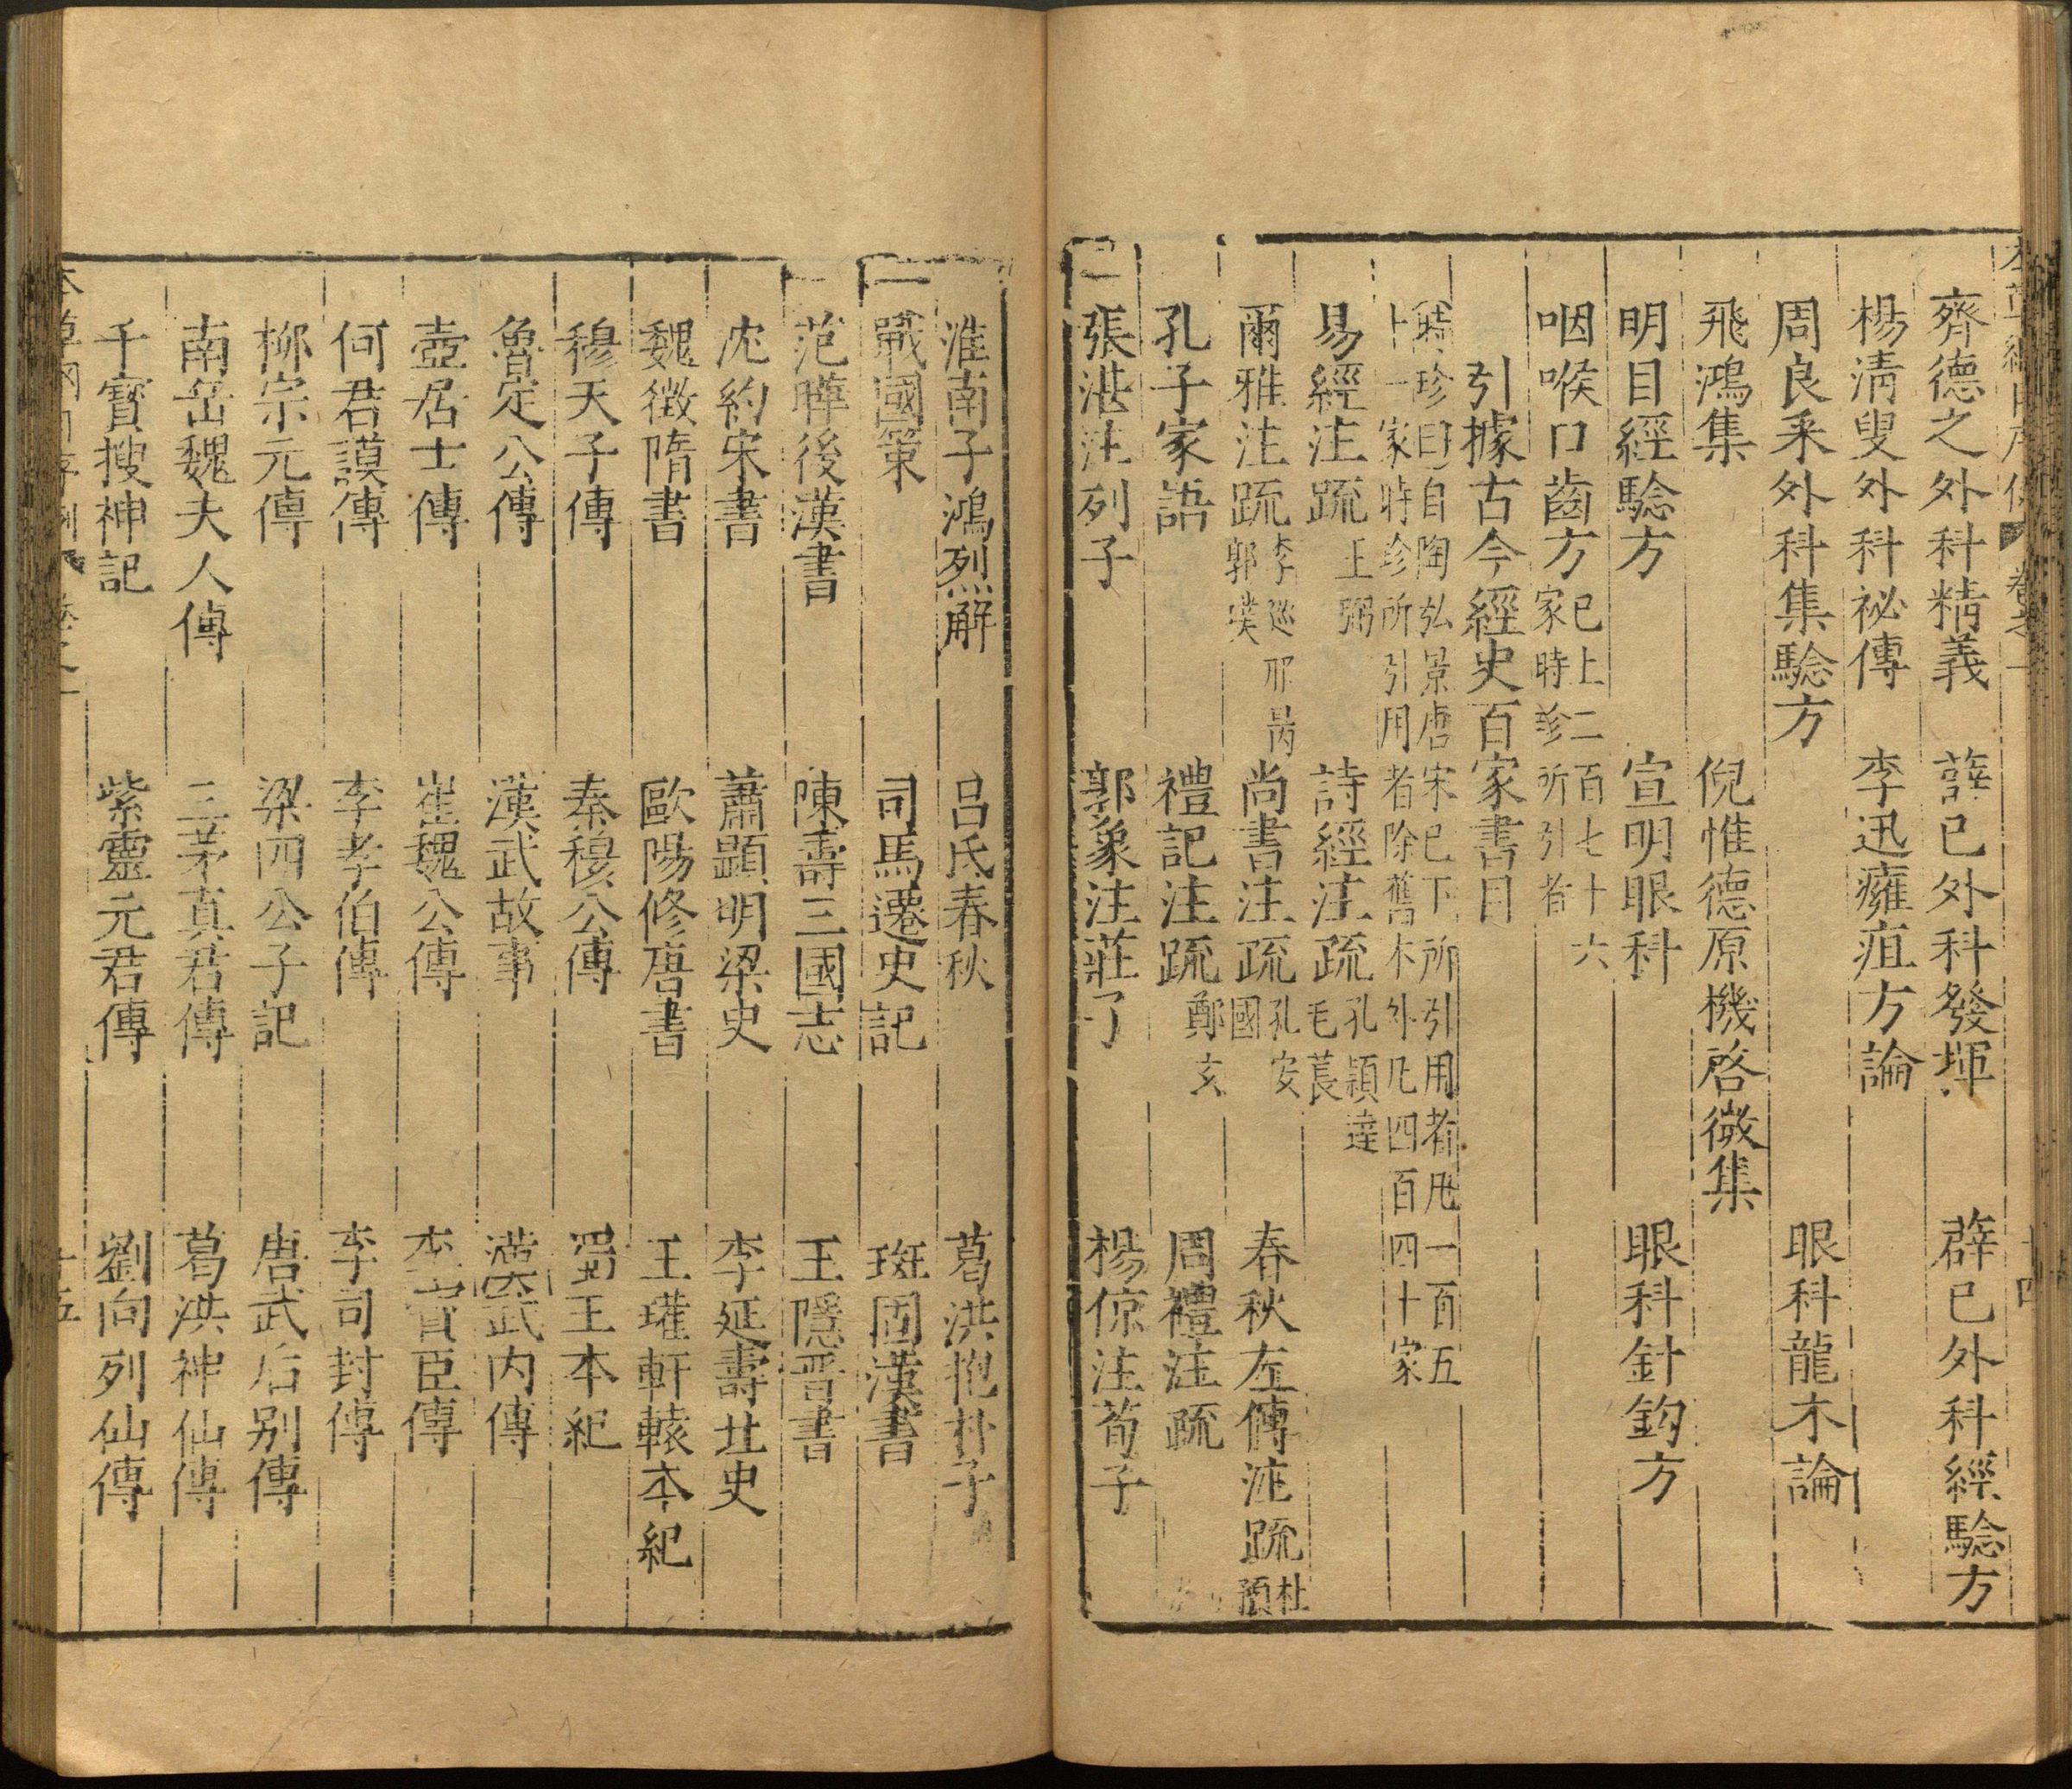 齊德之外科精義　薛已外科發揮　薜已外科經驗方
楊清叟外科祕傳　李迅癰疽方論
周良采外科集驗方　眼科龍木論
飛鴻集　倪惟德原機啓微集
明目經驗方　宣明眼科　眼科針鉤方
咽喉口齒方 已上二百七十六家時珍所引者
引據古今經史百家書目
時珍曰自陶弘景唐宋已下所引用者凡一百五
十一家時珍所引用者除舊本外凡四百四十家
易經注疏 王弼　詩經注疏 孔穎達毛萇
爾雅注疏 李巡邢昺郭璞　尚書注疏 孔安國　春秋左傳注疏 杜預
孔子家語　禮記注疏 鄭玄　周禮注疏
張湛注列子　郭象注莊子　楊倞注荀子
淮南子鴻烈解　呂氏春秋　葛洪抱朴子
戰國策　司馬遷史記　班固漢書
范曄後漢書　陳壽三國志　王隱晉書
沈約宋書　蕭顯明梁史　李延壽北史
魏徵隋書　歐陽修唐書　王瓘軒轅本紀
穆天子傳　秦穆公傳　蜀王本紀
魯定公傳　漢武故事　漢武内傳
壺居士傳　崔魏公傳　李寶臣傳
何君謨傳　李孝伯傳　李司封傳
柳宗元傳　梁四公子記　唐武后别傳
南岳魏夫人傳　三茅真君傳　葛洪神仙傳
干寶搜神記　紫靈元君傳　劉向列仙傳